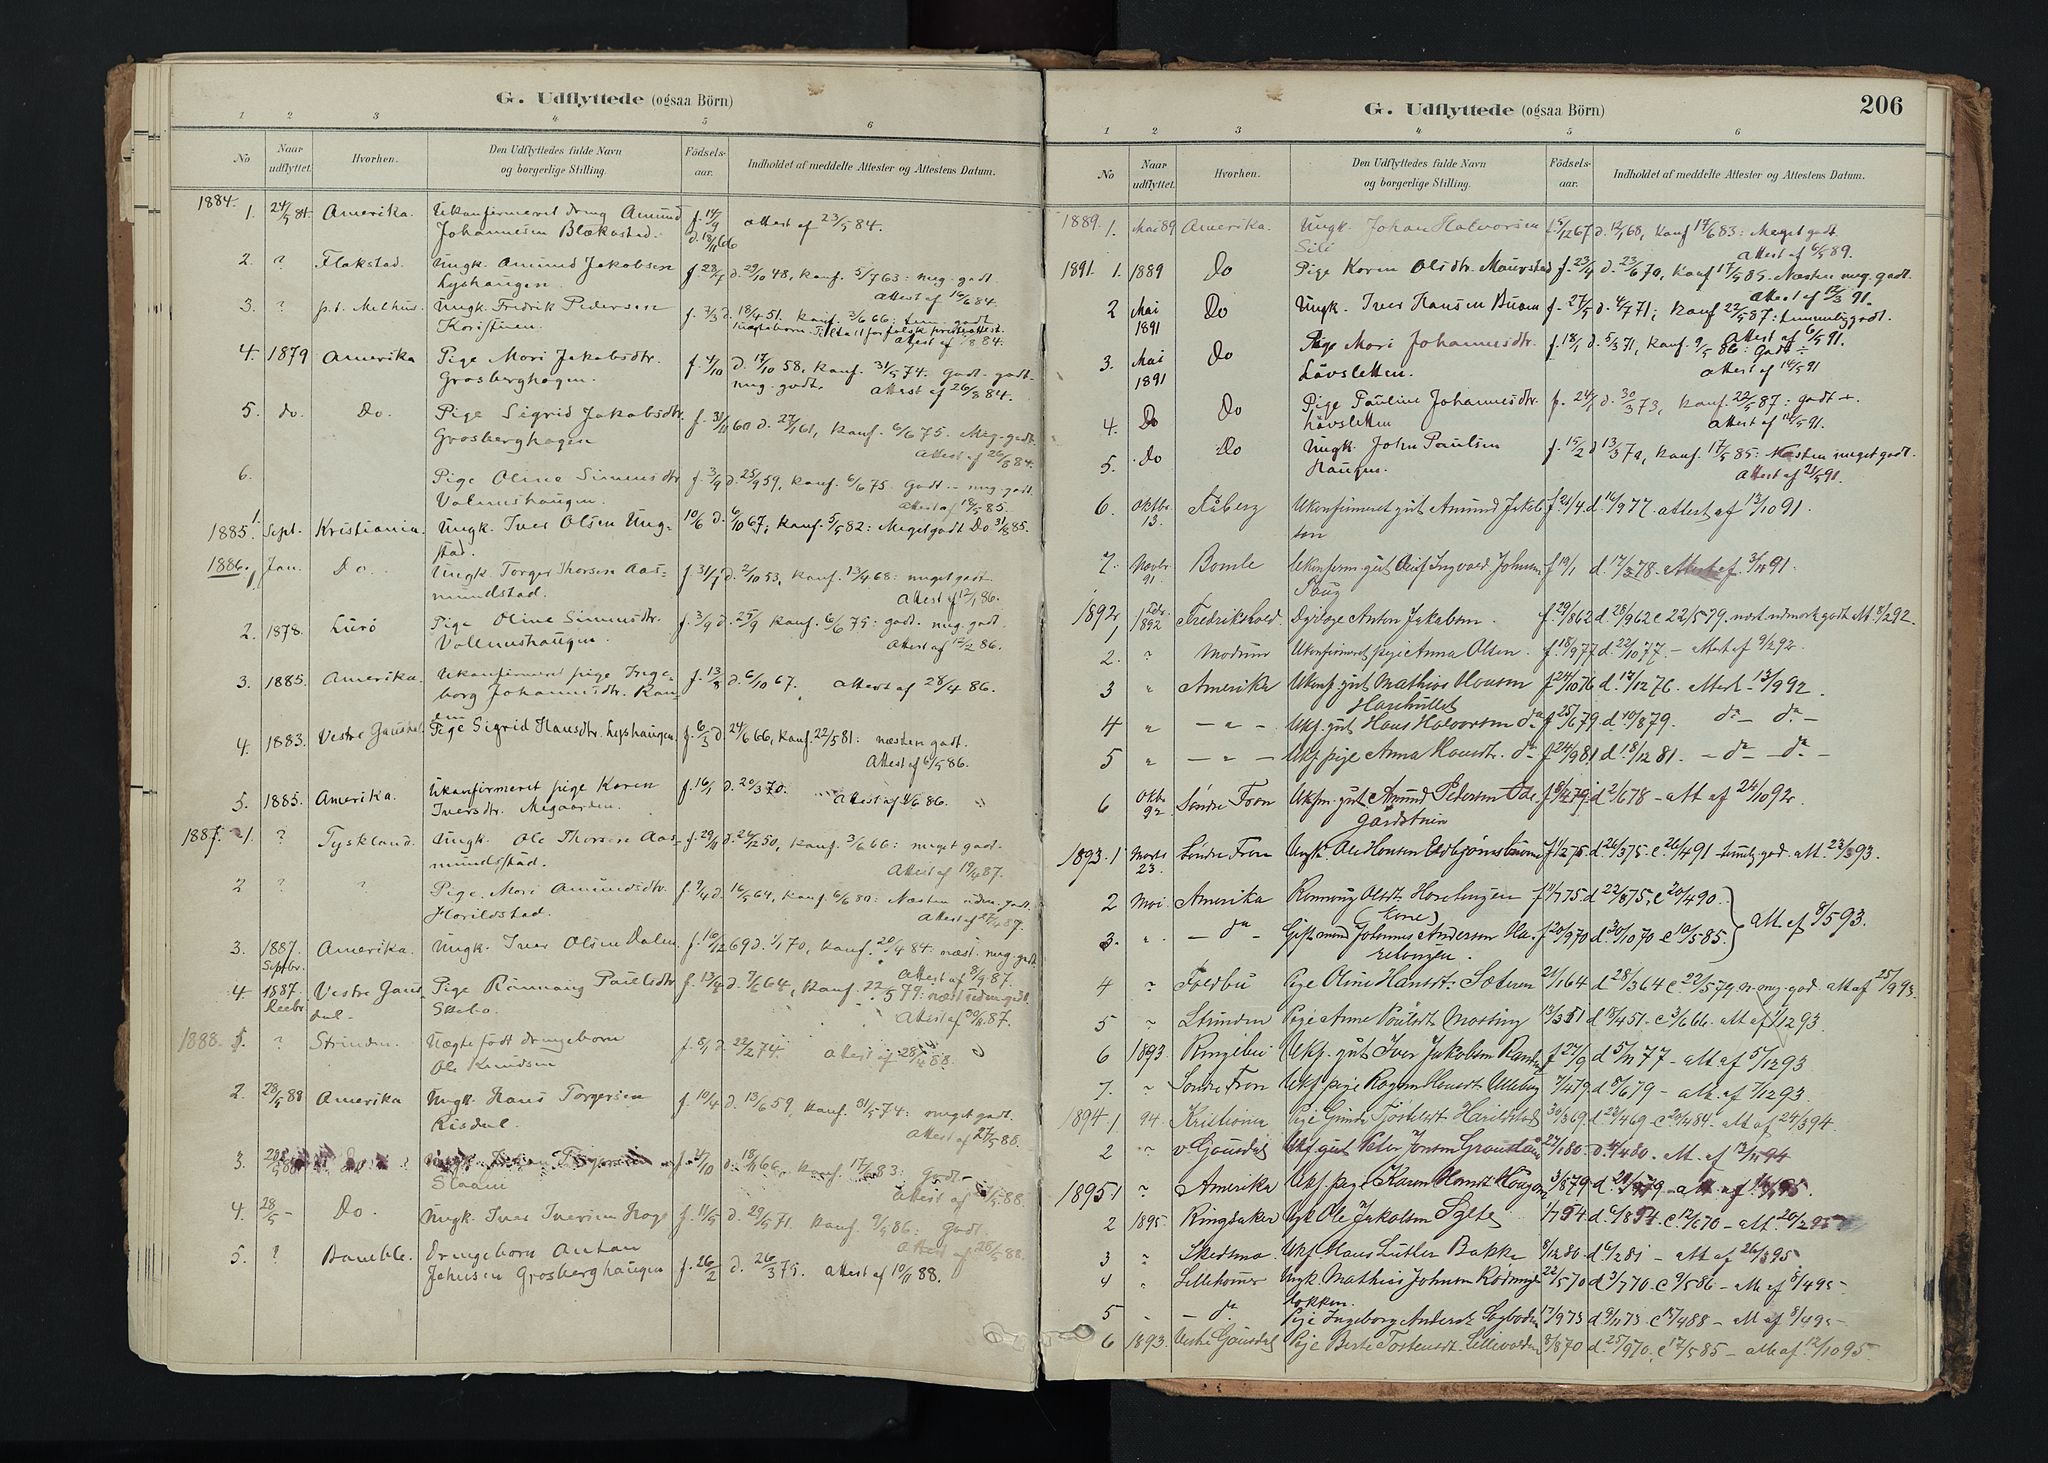 G. Udflyttede (ogsaa Börn)
1 2 3 4 5 6
No Naar udflyttet. Hvorhen. Den Udflyttedes fulde Navn og borgerlige Stilling. Födsels-aar. Indholdet af meddelte Attester og Attestens Datum.
1884.
1. 24/5 84. Amerika. Ukonfirmeret dreng Amund f. 14/9
Johannesen Blækastad. d. 18/11 66 Attest af 23/5 84.
2. ? Flakstad. Ungk. Amund Jakobsen f. 23/7 d. 29/10 48, konf. 5/7 63: mg. godt
Lyshaugen. Attest af 16/6 84.
3. ? p.t. Melhus. Ungk. Fredrik Pedersen f. 3/3 d. 18/4 51. konf. 3/6 66: tem. godt
Attest af /8 84.
4. 1879 Amerika Pige Mari Jakobsdtr. f. 4/10 d. 17/10 58, konf. 31/5 74. godt. godt-
Grosberghagen. mg. godt. Attest af 26/8 84.
5. do. Do. Pige Sigrid Jakobsdtr. f. 31/11 60 d. 27/1 61, konf. 6/6 75. Mg. godt
Grosberghagen Attest af 26/8 84.
6. Pige Oline Simensdtr f. 3/9 d. 25/9 59, konf. 6/6 75: Godt - mg. godt.
Volmushaugen. Attest af 18/5 85.
1885. 1. Sept. Kristiania. Ungk. Iver Olsen Ung- 10/6 d. 6/10 67, konf. 5/5 82: Meget godt Do 31/8 85.
stad.
1886. 1 Jan. Do. Ungk. Torger Thorsen Aas- f. 31/7 d. 2/10 53, konf. 13/4 68: meget godt
mundstad. Attest af 12/1 86.
2. 1878. Lurö Pige Oline Simensdtr. f. 3/9 d. 25/9 konf. 6/6 75: godt. mg. godt.
Vollmushaugen. Attest af 15/2 86.
3. 1885. Amerika. Ukonfirmeret pige Inge- f. 13/8 d. 6/10 67. Attest af 28/4 86.
borg Johannesdtr.
4. 1883. Vestre Gausdal Pige Sigrid Hansdtr. Lyshaugen f. 6/3 d. 24/6 66, konf. 22/5 81: næsten godt.
Attest af 6/5 86.
5. 1885. Amerika. Ukonfirmeret pige Karen f. 16/1 d. 20/3 70. Attest af 86.
Iversdtr. Megaarden.
1887. 1. ? Tyskland. Ungk. Ole Thorsen Aas- f. 29/11 d. 26/12 50, konf. 3/6 66: meget godt.
mundsstad. Attest af 19/4 87.
2 ? ? Pige Mari Amundsdtr. f. 9/4 d. 16/5 64, konf. 6/6 80: Næsten uden. godt.
Harildstad. Attest af 27/4 87.
3. 1887. Amerika. Ungk. Iver Olsen Dalen f. 10/12 69 d. 1/1 70, konf. 20/4 84: næst. mg. godt
Septbr. Attest af 8/9 87.
4. 1887. Vestre Gaus- Pige Rönnaug Paulsdtr f. 13/4 d. 7/6 64, konf. 22/5 79: næst. uden godt.
Decbr. dal. Attest af 30/11 87.
1888. 1. ? Strinden. Uægte født drengebarn f. 8/1 d. 22/2 74. Attest af 28/2 88.
Ole Knudsen
2. 28/5 88 Amerika Ungk. Hans Torgersen f. 10/4 d. 13/6 59, konf. 31/5 74: meget godt.
Risdal. Attest af 27/5 88.
3. f. 4/10 d. 18/11 66, konf. 17/6 83: godt -
Slaani Attest af 88.
4. 28/5 - Do. Ungk. Iver Iversen Hage f. 11/5 d. 29/5 71. konf. 9/5 86: godt.
Attest af 28/5 88.
5. ? Bamble. Drengebarn Anton f. 26/2 d. 26/3 75. Attest af 10/11 88.
Johnsen Grosberghaugen
G. Udflyttede (ogsaa Börn) 206
1 2 3 4 5 6
No Naar udflyttet. Hvorhen. Den Udflyttedes fulde Navn og borgerlige Stilling. Födsels-aar. Indholdet af meddelte Attester og Attestens Datum.
1889. 1. Mai 89 Amerika. Ungk. Johan Halvorsen f. 15/12 67 d. 12/1 68, konf 17/6 83: Meget godt
Attest af 6/5 89.
1891. 1. 1889 Do Pige Karen Olsdtr. Maurstad f. 23/4 d. 23/6 70, konf 17/5 85. Næsten mg. godt.
Attest af 12/3 91.
2 Mai 1891 Do Ungk. Iver Hansen f. 27/5 d. 4/7 71, konf 22/5 87: temmelig godt.
Attest af 6/5 91.
3. Mai 1891 Do Pige Mari Johannesdtr. f. 18/1 d. 5/3 71, konf. 9/5 86: Godt ÷
Lövsletten. Attest af 14/5 91
4. Do Do Pige Pauline Johannesdtr. f. 24/1 d. 30/3 73, konf. 22/5 87: godt +.
Lövsletten Attest af 14/5 91.
5. Do Do Ungk. John Paulsen f. 15/2 d 13/3 70, konf. 17/5 85: Næsten meget godt.
Haugen. Attest af 21/5 91.
6. Oktbr. 13. Faaberg Ukonfirmeret gut Amund Jakob- f. 24/4 d. 16/9 77. attest af 13/10 91.
sen
7. Novbr 91 Bamle Ukonfirm. gut Olaf Ingvald Johnsen f 19/1 d. 17/3 78. Attest af 3/11 91.
Haug
1892 1 Febr 1892 Fredrikshald. Anton Jakobsen. f. 29/8 62 d. 28/9 62 c 22/5 79. Att. 8/2 92.
2. " Modum Ukonfirmeret pige Anna Olsen. f. 18/9 77 d. 22/10 77. - attest af 9/2 92.
3 " Amerika Ukonf. gut Mathias Hansen f 24/10 76 d. 17/12 76. Attest - 13/9 92.
4 " - " - Ukf. gut Hans Halvorsen do f 25/6 79 d. 10/8 79. do - do -
5 " - " - Ukf pige Anna Hansdtr. do f 24/9 81 d. 18/12 81. - do - do -
6 Oktbr 92 Søndre Fron Ukfm. gut Amund Pedersen Ode- f 8/4 79 d 2/6 78 - att af 24/10 92.
gardstuen
1893. 1 Marts 23. Søndre Fron Ungk. Ole Hansen f 1/2 75 d. 26/3 75. c. 26/4 91 - temlg god. att. 23/3 93.
2 Mai Amerika Rønnaug Olsdtr f 11/7 75. d 22/8 75, c 20/4 90. att af 8/5 93.
(Kone)
3. " - do - Gift mand Johannes Andersen f 20/9 70 d. 30/10 70 c 10/5 85.
4 " Foldbu Pige Oline Hansdtr. Sæteren 21/1 64 d 28/3 64 c. 22/5 79 n. mg. god. att af 25/9 93
5 " Strinden Pige Anne Paulsdtr Morting 13/3 51 d 18/4 51. c 3/6 66. att af 1/12 93.
6 1893 Ringebu Ukf. gut Iver Jakobsen f 27/9 d 5/11 77 - att af 5/12 93
7. " Søndre Fron Ukf pige Ragna Hansdtr Ulleberg 7/4 79 d 8/6 79 - att. af 7/12 93.
1894 1. 94. Kristiania Pige Harildstad 30/3 69. d. 23/4 69 c 20/4 84 - att af 24/3 94.
2 " v Gausdal Ukf. gut Peter Jonsen 27/1 80 d. 4/4 80. att. af 12/11 94
1895 1 " Amerika Ukf. pige Karen Hansdt Haugen 3/8 79 d. 21/9 79 - att. af 95.
2 1895. Ringsaker Ugk Ole Jakobsen Sylte 1/7 54 d 6/8 54. c 12/6 70 - att. 20/2 95
3 " Skedsmo. Ukf. Hans Luther Bakke 8/12 80 d 6/2 81 - att af 26/3 95
4 " Lillehammer Ungk. Mathias Johnsen 22/5 70 d 3/7 70. c 9/5 86 - att af 5/4 95 -
løkken.
5 " - do Pige Ingeborg Andersdt 17/9 73 d 9/11 73. c 15/4 88 - att af 8/4 95 -
6 1893. Vestre Gausdal Pige Berte Tostensdt. Lillevolden 8/8 70 d. 25/9 70, c 17/5 85 - att. af 12/10 95.